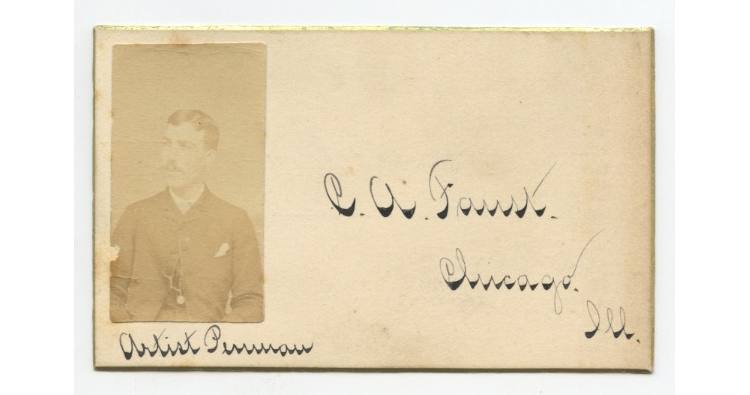 C. A. Faust.
Chicago.
Ill.
Artist Penman